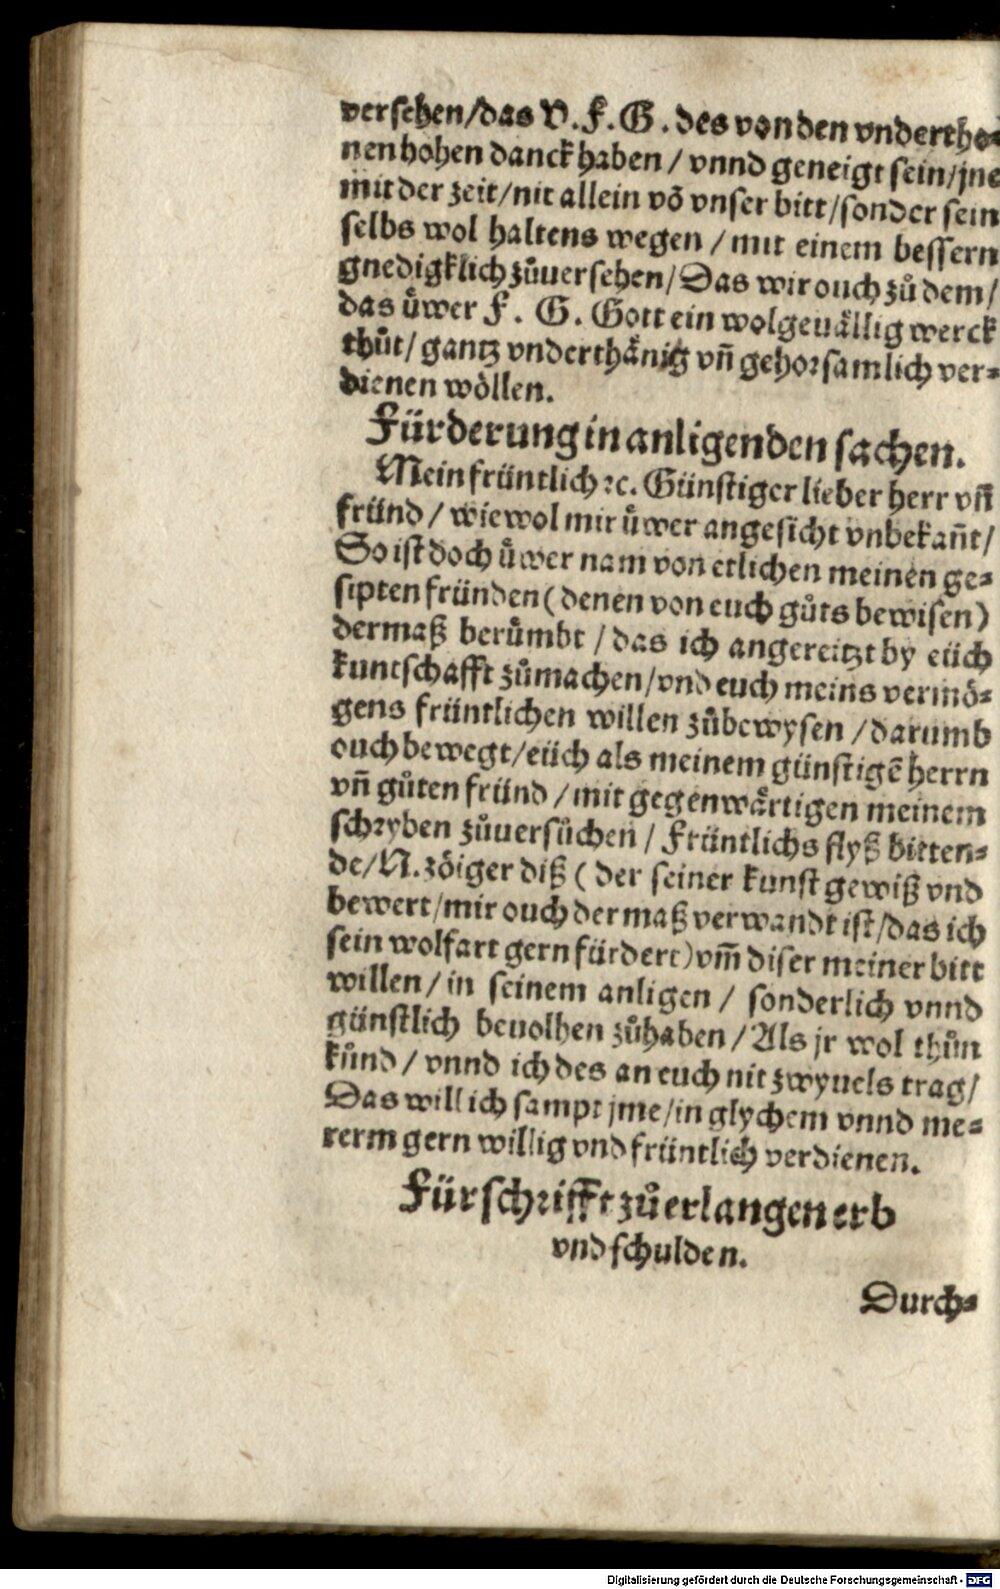 versehen/das V.F.G. des von den vnderthe-
nen hohen danck haben / vnnd geneigt sein/jne
mit der zeit/nit allein võ vnser bitt/sonder sein
selbs wol haltens wegen / mit einem bessern
gnedigklich zůuersehen/Das wir ouch zů dem/
das üwer F. G. Gott ein wolgeuällig werck
thůt/gantz vnderthänig vñ gehorsamlich ver-
dienen wöllen.
Fürderung in anligenden sachen.
Mein früntlich ꝛc. Günstiger lieber herr vñ
fründ / wiewol mir üwer angesicht vnbekañt/
So ist doch üwer nam von etlichen meinen ge-
sipten fründen (denen von euch gůts bewisen)
dermaß berůmbt / das ich angereitzt by eüch
kuntschafft zůmachen/vnd euch meins vermö-
gens früntlichen willen zůbewysen / darumb
ouch bewegt/eüch als meinem günstigẽ herrn
vñ gůten fründ / mit gegenwärtigen meinem
schryben zůuersůchen / Früntlichs flyß bitten-
de/N. zöiger diß ( der seiner kunst gewiß vnd
bewert/mir ouch dermaß verwandt ist/das ich
sein wolfart gern fürdert) vm̃ diser meiner bitt
willen / in seinem anligen / sonderlich vnnd
günstlich beuolhen zůhaben / Als jr wol thůn
künd / vnnd ich des an euch nit zwyuels trag/
Das will ich sampt jme/in glychem vnnd me-
rerm gern willig vnd früntlich verdienen.
Fürschrifft zů erlangen erb
vnd schulden.
Durch-
Digitalisierung gefördert durch die Deutsche Forschungsgemeinschaft - DFG